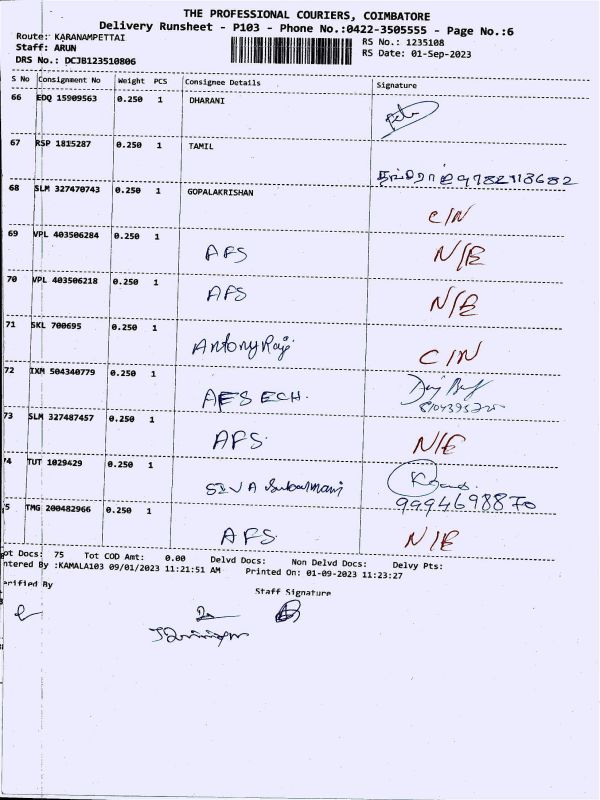 THE PROFESSIONAL COURIERS, COIMBATORE
Delivery Runsheet - P103 - Phone No.:0422-3505555 - Page No.:6
Route: KARANAMPETTAI
RS No.: 1235108
Staff: ARUN
RS Date: 01-Sep-2023
DRS No.: DCJB123510806
S No Consignment No Weight PCS Consignee Details Signature
66 EDQ 15909563 0.250 1 DHARANI
67 RSP 1815287 0.250 1 TAMIL
9782118682
68 SLM 327470743 0.250 1 GOPALAKRISHAN
C/N
69 VPL 403506284 0.250 1
AFS N/E
70 VPL 403506218 0.250 1
AFS N/E
71 SKL 700695 0.250 1
Antony Raj. C/N
72 IXM 504340779 0.250 1
AFS ECH.
73 SLM 327487457 0.250 1
AFS. N/E
74 TUT 1029429 0.250 1
SIVA Subarmani
9994698870
5 TMG 200482966 0.250 1
AFS. N/E
ot Docs: 75 Tot COD Amt: 0.00 Delvd Docs: Non Delvd Docs: Delvy Pts:
ntered By :KAMALA103 09/01/2023 11:21:51 AM Printed On: 01-09-2023 11:23:27
erified By Staff Signature